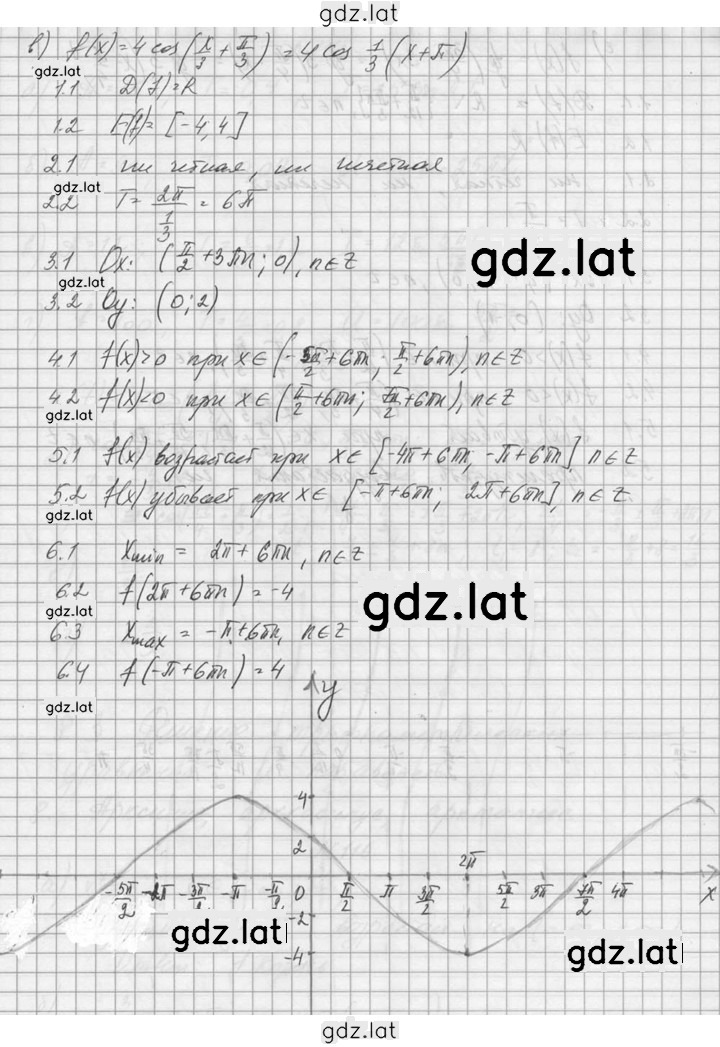 gdz.lat
в) f(x)=4 cos(x/3 + π/3) = 4 cos 1/3 (x+π)
gdz.lat
1.1 D(f)=R
1.2 E(f)= [-4,4]
2.1 ни четная, ни нечетная
gdz.lat
2.2 T= 2π/(1/3) = 6π
gdz.lat
3.1 Ox: (π/2 +3πn; 0), n∈Z
gdz.lat
3.2 Oy: (0; 2)
4.1 f(x)>0 при x∈(-5π/2+6πn; π/2+6πn), n∈Z
gdz.lat
4.2 f(x)<0 при x∈(π/2+6πn; 7π/2+6πn), n∈Z
gdz.lat
5.1 f(x) возрастает при x∈ [-4π+6πn, -π+6πn], n∈Z
gdz.lat
5.2 f(x) убывает при x∈ [-π+6πn; 2π+6πn], n∈Z
gdz.lat
6.1 xmin = 2π+6πn, n∈Z
6.2 f(2π+6πn)=-4
gdz.lat
gdz.lat
6.3 xmax = -π+6πn, n∈Z
6.4 f(-π+6πn)=4
gdz.lat
y
4
2
2π
-5π/2 -2π -3π/2 -π -π/2 0 π/2 π 3π/2 5π/2 3π 7π/2 4π x
-2
gdz.lat
-4
gdz.lat
gdz.lat